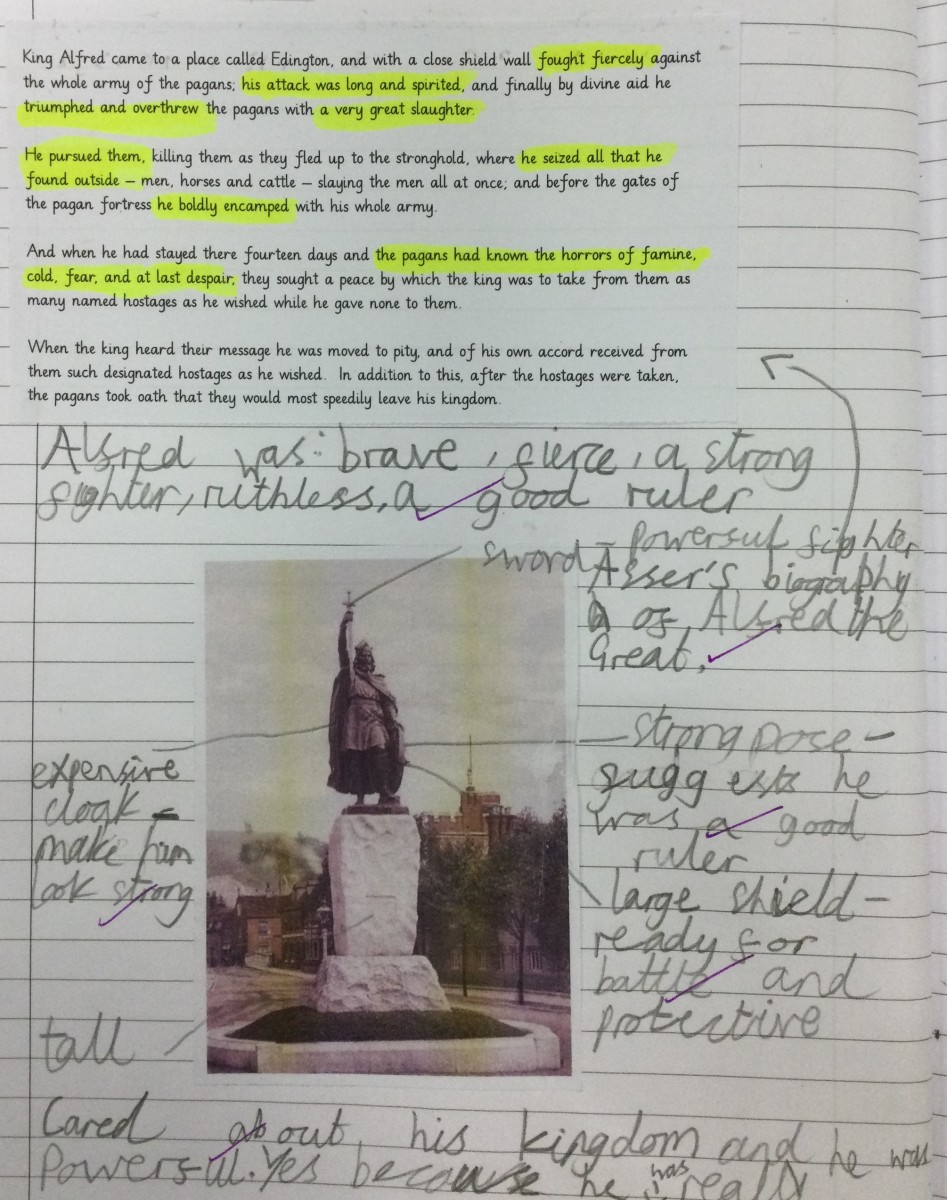 King Alfred came to a place called Edington, and with a close shield wall fought fiercely against
the whole army of the pagans; his attack was long and spirited, and finally by divine aid he
triumphed and overthrew the pagans with a very great slaughter.
He pursued them, killing them as they fled up to the stronghold, where he seized all that he
found outside – men, horses and cattle – slaying the men all at once; and before the gates of
the pagan fortress he boldly encamped with his whole army.
And when he had stayed there fourteen days and the pagans had known the horrors of famine,
cold, fear, and at last despair, they sought a peace by which the king was to take from them as
many named hostages as he wished while he gave none to them.
When the king heard their message he was moved to pity, and of his own accord received from
them such designated hostages as he wished. In addition to this, after the hostages were taken,
the pagans took oath that they would most speedily leave his kingdom.
Alfred was: brave, fierce, a strong
fighter, ruthless, a good ruler
sword – powerful fighter
Asser's biography
of Alfred the
Great.
expensive
cloak –
make him
look strong
strong pose –
suggests he
was a good
ruler
large shield –
ready for
battle and
protective
tall
Cared about his kingdom and he was
Powerful. Yes because he was really